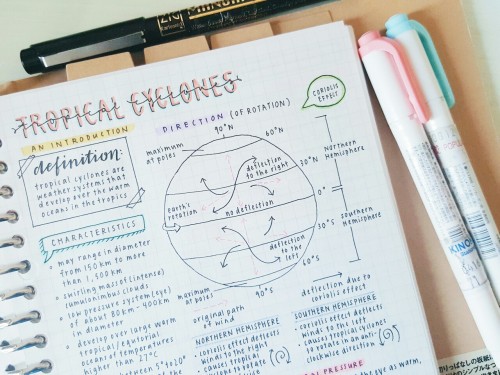 TROPICAL CYCLONES
AN INTRODUCTION
definition:
tropical cyclones are
weather systems that
develop over the warm
oceans in the tropics
CHARACTERISTICS
may range in diameter
from 150 km to more
than 1,500 km
swirling mass of (intense)
cumulonimbus clouds
low pressure system (eye)
of about 80km - 400km
in diameter
develop over large warm
tropical/equatorial
oceans of temperatures
higher than 27°C
between 5° to 20°
DIRECTION (OF ROTATION)
CORIOLIS
EFFECT
90°N
60°N
maximum
at poles
deflection
to the right
30°N
Northern
Hemisphere
earth's
rotation
no deflection
0°
Southern
Hemisphere
30°S
deflection to
left
60°S
maximum
at poles
90°S
original path
of wind
deflection due to
coriolis effect
NORTHERN HEMISPHERE
coriolis effect deflects
winds to the right
causes tropical
SOUTHERN HEMISPHERE
coriolis effect deflects
winds to the left
causes tropical cyclones
to rotate in an anti-
clockwise direction
PRESSURE
ZIG